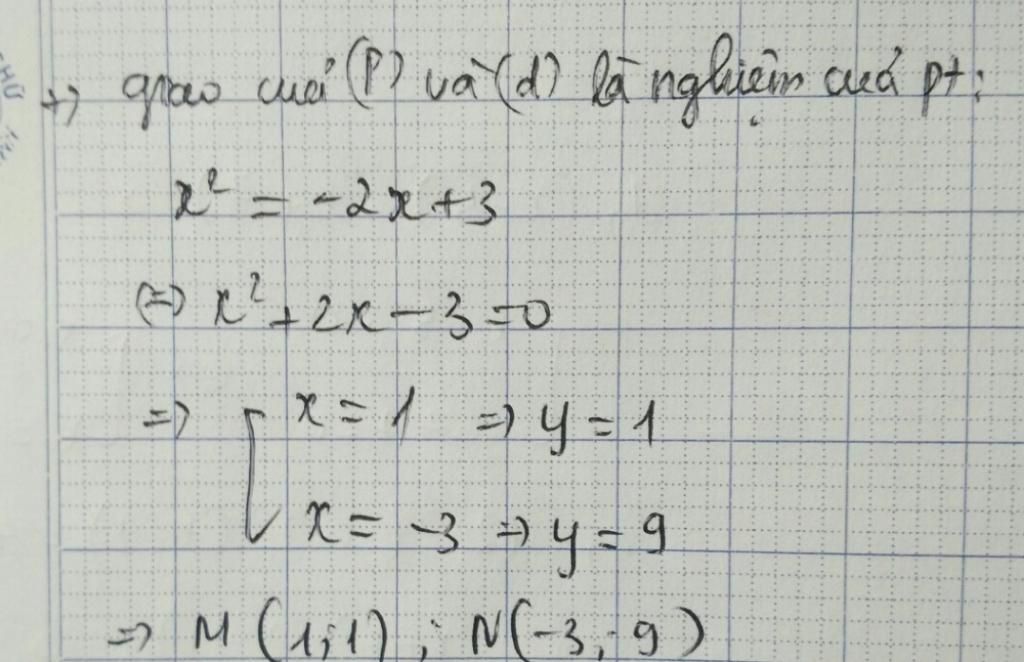 +) giao cuả (P) và (d) là nghiệm cuả pt:
x² = -2x+3
(=) x² + 2x - 3 = 0
=> [ x = 1 => y = 1
x = -3 => y = 9
=> M (1;1) ; N(-3; 9)